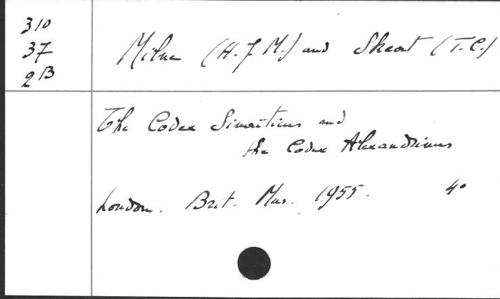 310
37
2B
Milne (H.J.M.) and Skeat (T.C.)
The Codex Sinaiticus and
the Codex Alexandrinus
London. Brit. Mus. 1955. 4°